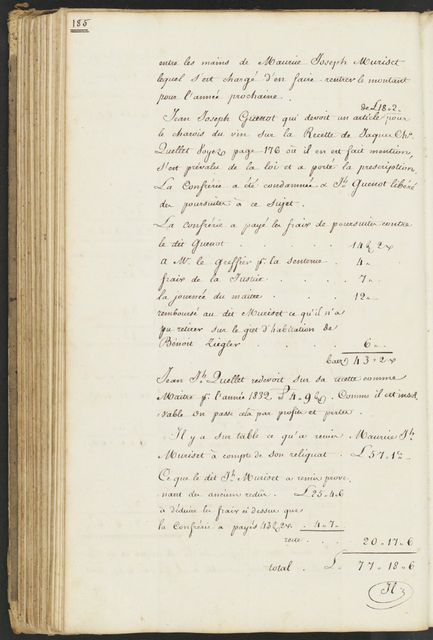 185
entre les mains de Maurice Joseph Muriset
lequel s'est chargé d'en faire rentrer le montant
pour l'année prochaine.
de L 18 = 2.
Jean Joseph Guenot qui devoit un article pour
le charois du vin sur la Recette de Jaques Ch.
Quellet Voyez page 176 où il en est fait mention,
s'est prévalu de la loi et a porté la prescription,
La Confrérie a été condamnée & Jh Guenot libéré
des poursuites à ce sujet.
La confrérie a payé les frais de poursuites contre
le dit Guenot . . . . . 14
A Mr. le Greffier pr la sentence . . 4 "
frais de la Justice . . . . 7 "
la journée du maitre . . . 12 "
remboursé au dit Muriset ce qu'il n'a
pu retirer sur le giet d'habitation de
Bénoit Liegler . . . . 6 "
43 = 2
Jean Jh Quellet redevoit sur sa recette comme
Maitre pr l'année 1832 4 = 9 Comme il est insol
vable on passe cela par profits et pertes.
Il y a sur table ce qu'a remis Maurice Jh
Muriset à compte de son reliquat . L 57 = 1 =
Ce que le dit Jh Muriset a remis prove
nant des anciens redus . L 25 = 4 = 6
à déduire les frais ci dessus que
la Confrérie a payés 43 2 . 4 = 7 =
reste . . . 20 = 17 = 6
total . L 77 = 18 = 6